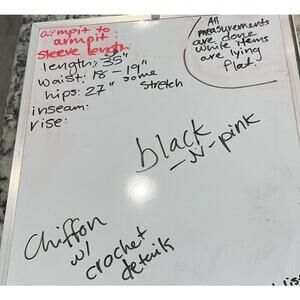 armpit to
armpit:
sleeve length:
length: 35"
waist: 18 - 19" some
stretch
hips: 27"
inseam:
rise:
All
measurements
are done
white items
are lying
flat.
black
-N- pink
Chiffon
w/
crochet
details